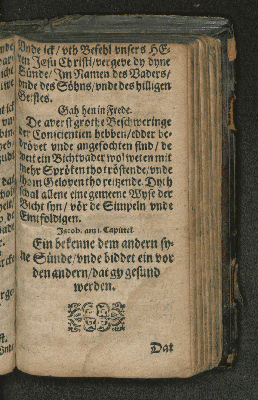 Vnde ick / vth Befehl vnsers HE-
ren Jesu Christi / vergeve dy dyne
Sünde / Im Namen des Vaders /
vnde des Söhns / vnde des hilligen
Geistes.
Gah hen in Frede.
De averst grothe Beschweringe
der Conscientien hebben / edder be-
drövet vnde angefochten sind / de
wert ein Bichtvader wol weten mit
mehr Spröken tho trösten de / vnde
thom Geloven tho reitzende. Dyth
schal allene eine gemeene Wyse der
Bicht syn / vör de Simpeln vnde
Eintfoldigen.
Jacob. am Capittel
Ein bekenne dem andern sy-
ne Sünde / vnde biddet ein vor
den andern / dat gy gesund
werden.
Dat